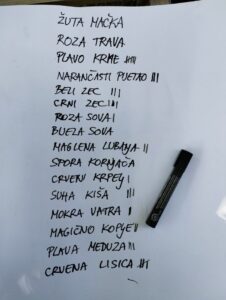 ŽUTA MAČKA
ROZA TRAVA
PLAVO KRME III
NARANČASTI PIJETAO III
BELI ZEC III
CRNI ZEC III
ROZA SOVA I
BIJELA SOVA
MAGLENA LUBANJA II
SPORA KORNJAČA
CRVENI KRPELJ I
SUHA KIŠA III
MOKRA VATRA I
MAGIČNO KOPLJE II
PLAVA MEDUZA III
CRVENA LISICA